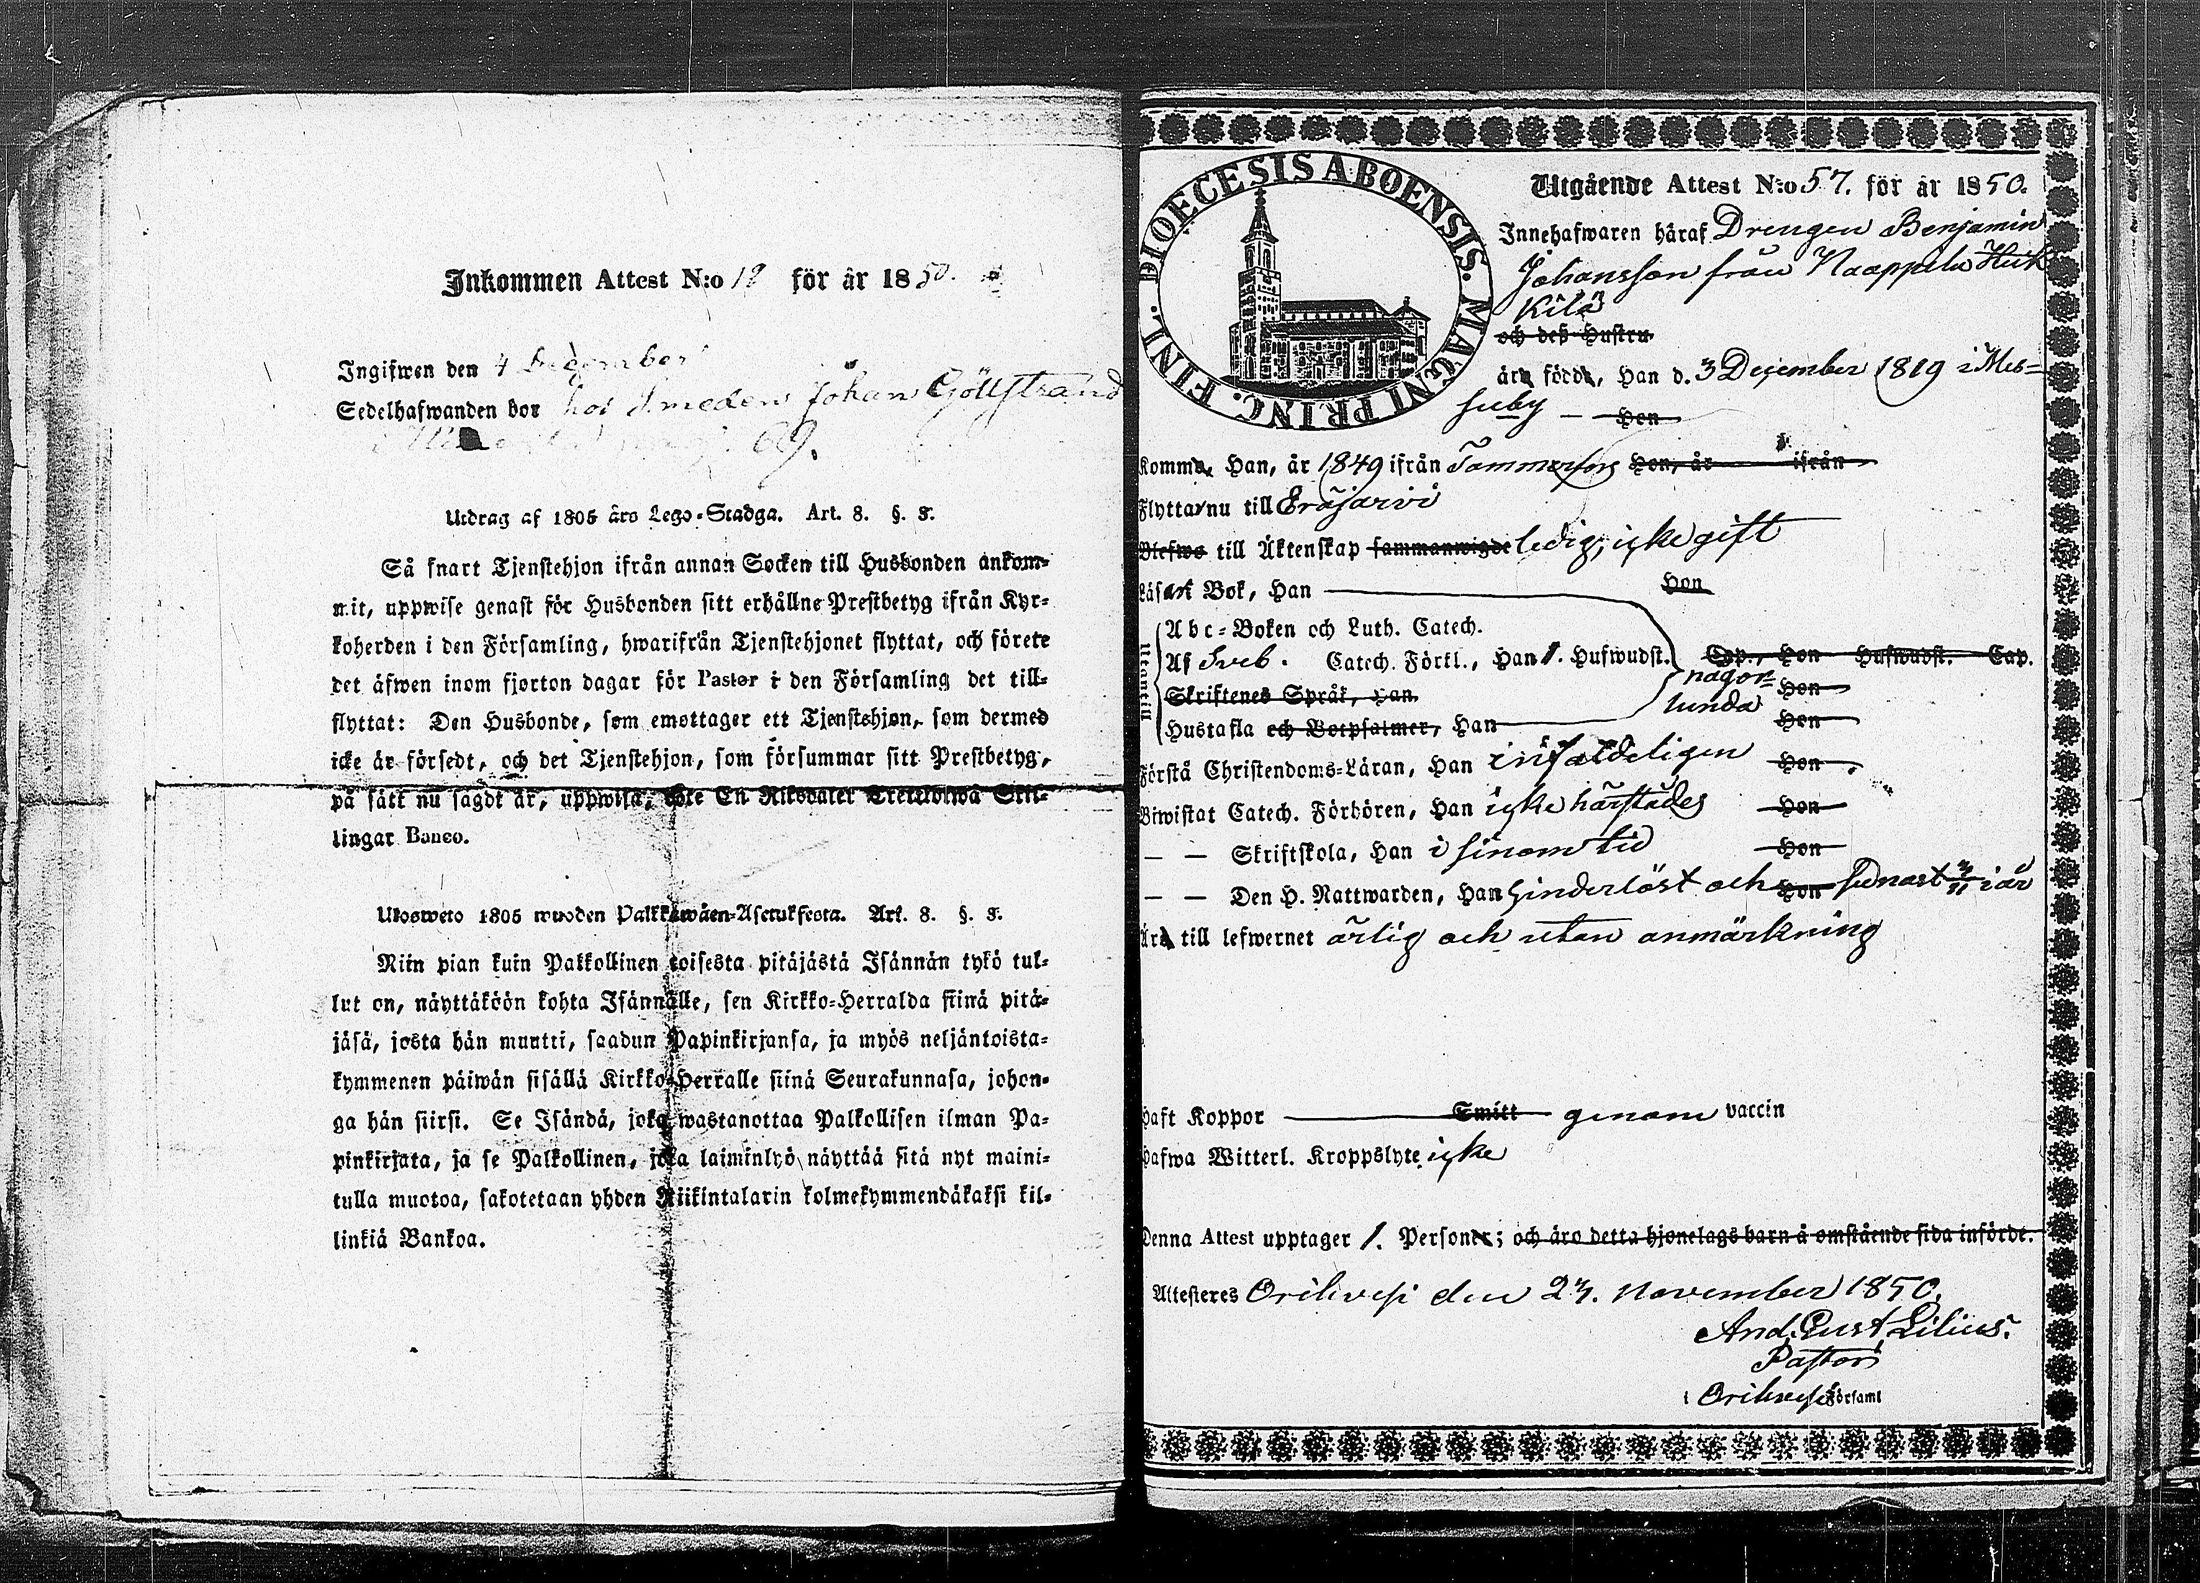 Inkommen Attest N:o 19 för år 1850.
Ingifwen den 4 December
Sedelhafwanden bor hos Smeden Johan Göllstrand
69.
Utdrag af 1805 års Lego-Stadga. Art. 8. §. 3.
Så snart Tjenstehjon ifrån annan Socken till Husbonden ankom-
mit, uppwise genast för Husbonden sitt erhållne Prestbetyg ifrån Kyr-
koherden i den Församling, hwarifrån Tjenstehjonet flyttat, och förete
det äfwen inom fjorton dagar för Pastor i den Församling det till-
flyttat: Den Husbonde, som emottager ett Tjenstehjon, som dermed
icke är försedt, och det Tjenstehjon, som försummar sitt Prestbetyg,
på sätt nu sagdt är, uppwisa, böte En Riksdaler Trettiotwå Skil-
lingar Banco.
Ulosweto 1805 wuoden Palkkawäen-Asetuksesta. Art. 8. §. 3.
Niin pian kuin Palkollinen toisesta pitäjästä Isännän tykö tul-
lut on, näyttäköön kohta Isännälle, sen Kirkko-Herralda siinä pitä-
jäsä, josta hän muutti, saadun Papinkirjansa, ja myös neljäntoista-
kymmenen päiwän sisällä Kirkko-Herralle siinä Seurakunnasa, johon-
ga hän siirsi. Se Isändä, joka wastanottaa Palkollisen ilman Pa-
pinkirjata, ja se Palkollinen, joka laiminlyö näyttää sitä nyt maini-
tulla muotoa, sakotetaan yhden Riikintalarin kolmekymmendäkaksi kil-
linkiä Bankoa.
DIOECESIS ABOENSIS. MAGNI PRINC. FINL.
Utgående Attest N:o 57. för år 1850.
Innehafwaren häraf Drengen Benjamin
Johansson från Naappila
Kilä
och deß Hustru
äro födde, Han d. 3 December 1819 i Mes-
suby — Hon
Komma, Han, år 1849 ifrån Tammerfors Hon, år ifrån
Flytta nu till Eräjärvi
Blefwo till Äktenskap sammanwigde ledig, icke gift
Läsa i Bok, Han Hon
Utantill
Abc-Boken och Luth. Catech.
Af Sveb. Catech. Förkl., Han 1. Hufwudst. Cap., Hon Hufwudst. Cap.
Skriftenes Språk, Han någor- Hon
Hustafla och Botpsalmer, Han lunda Hon
Förstå Christendoms-Läran, Han infaldeligen Hon
Biwistat Catech. Förhören, Han icke härstädes Hon
— — Skriftskola, Han i sinom tid Hon
— — Den H. Nattwarden, Han hinderlöst och Hon senast 3/11 i år
Äro till lefwernet ärlig och utan anmärkning
Haft Koppor Smitt genom vaccin
Hafwa Witterl. Kroppslyte icke
Denna Attest upptager 1. Personer; och äro detta hjonelags barn å omstående sida införde.
Attesteres Orihvesi den 23. November 1850.
And. Gust. Lilius.
Pastor
i Orihvesi Församl